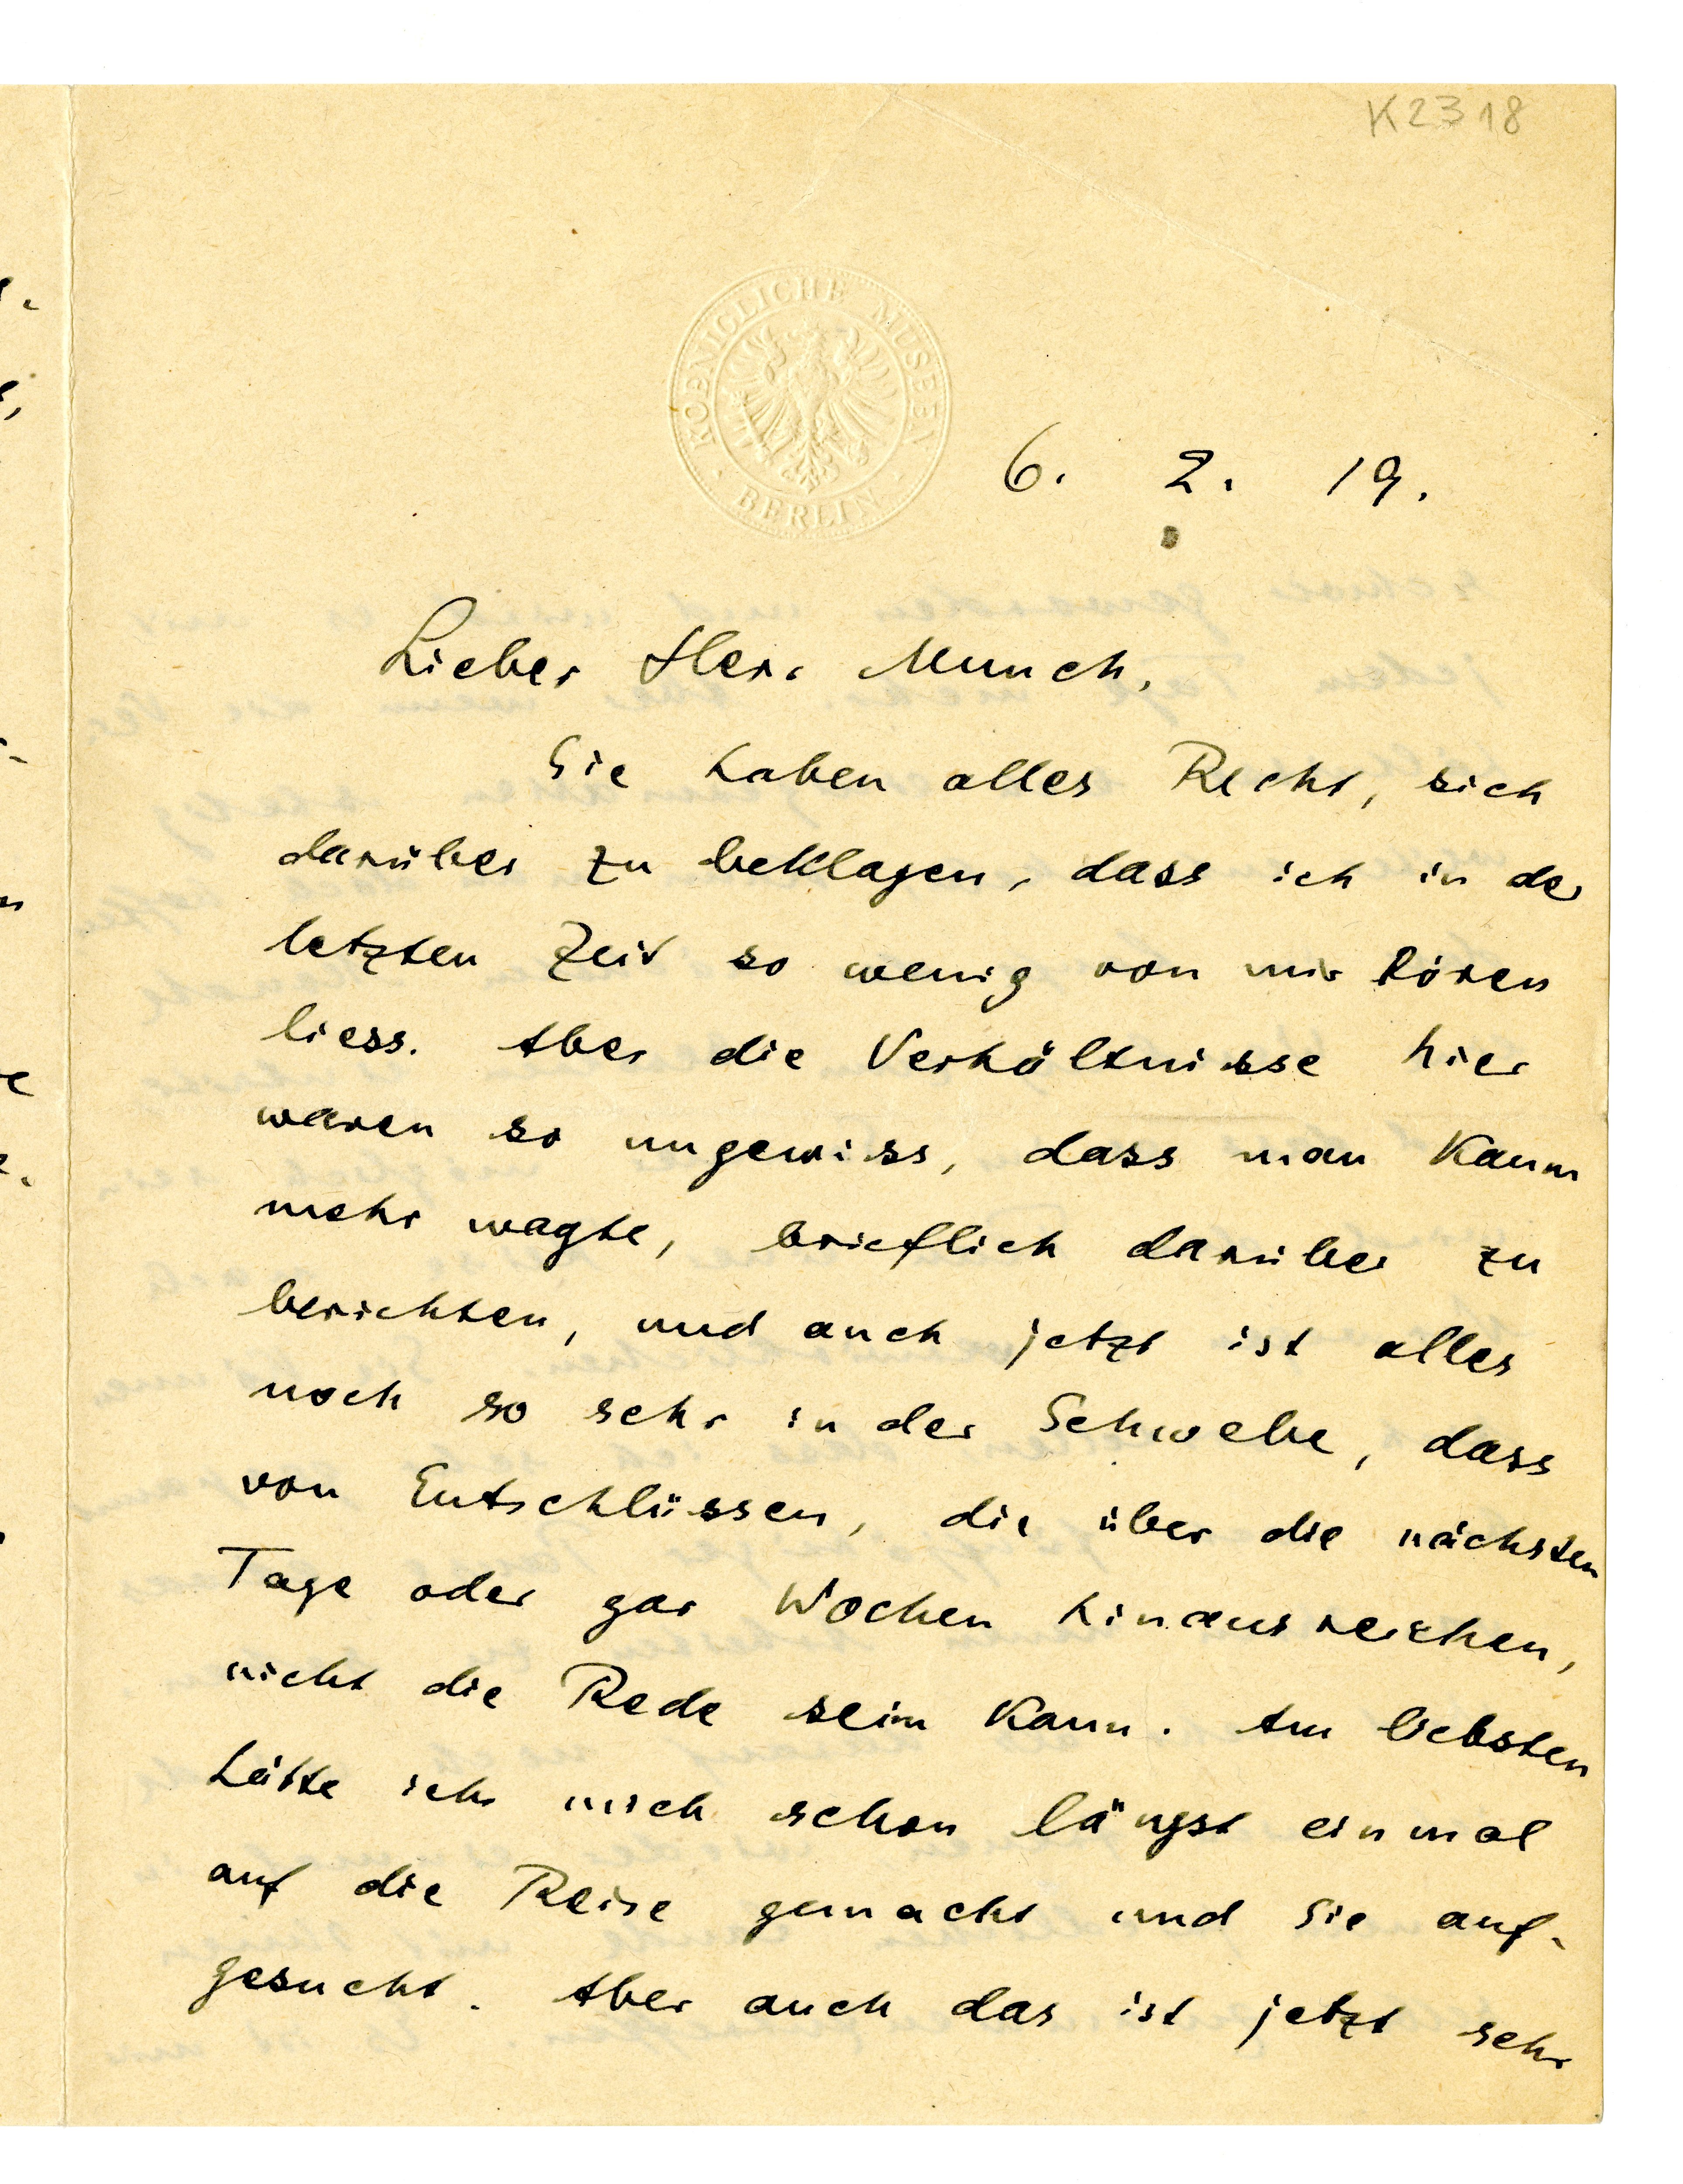 K2318
KOENIGLICHE MUSEEN · BERLIN ·
6. 2. 19.
Lieber Herr Munch,
Sie haben alles Recht, sich
darüber zu beklagen, dass ich in der
letzten Zeit so wenig von mir hören
liess. Aber die Verhältnisse hier
waren so ungewiss, dass man kaum
mehr wagte, brieflich darüber zu
berichten, und auch jetzt ist alles
noch so sehr in der Schwebe, dass
von Entschlüssen, die über die nächsten
Tage oder gar Wochen hinausreichen,
nicht die Rede sein kann. Am liebsten
hätte ich mich schon längst einmal
auf die Reise gemacht und Sie auf-
gesucht. Aber auch das ist jetzt sehr